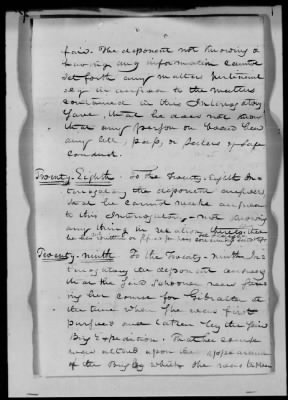 fair. The deponent not knowing or
having any information cannot
set forth any matter pertinent
in answer to the matters
contained in this Interrogatory
save, that he does not know
that any person on board had
any let, pass, or Letters of safe
conduct.
Twenty-Eighth. To the Twenty-Eighth In-
terrogatory the deponent answers
that he cannot make answer
to this Interrogatory, not knowing
any thing in relation
Twenty-ninth To the Twenty-ninth In-
terrogatory the deponent answers
that the said Schooner was steer-
ing her course for Gibraltar at
the time when she was first
pursued and taken by the said
Brig Expedition. That her course
was altered upon the appearance
of the Brig by which she was taken